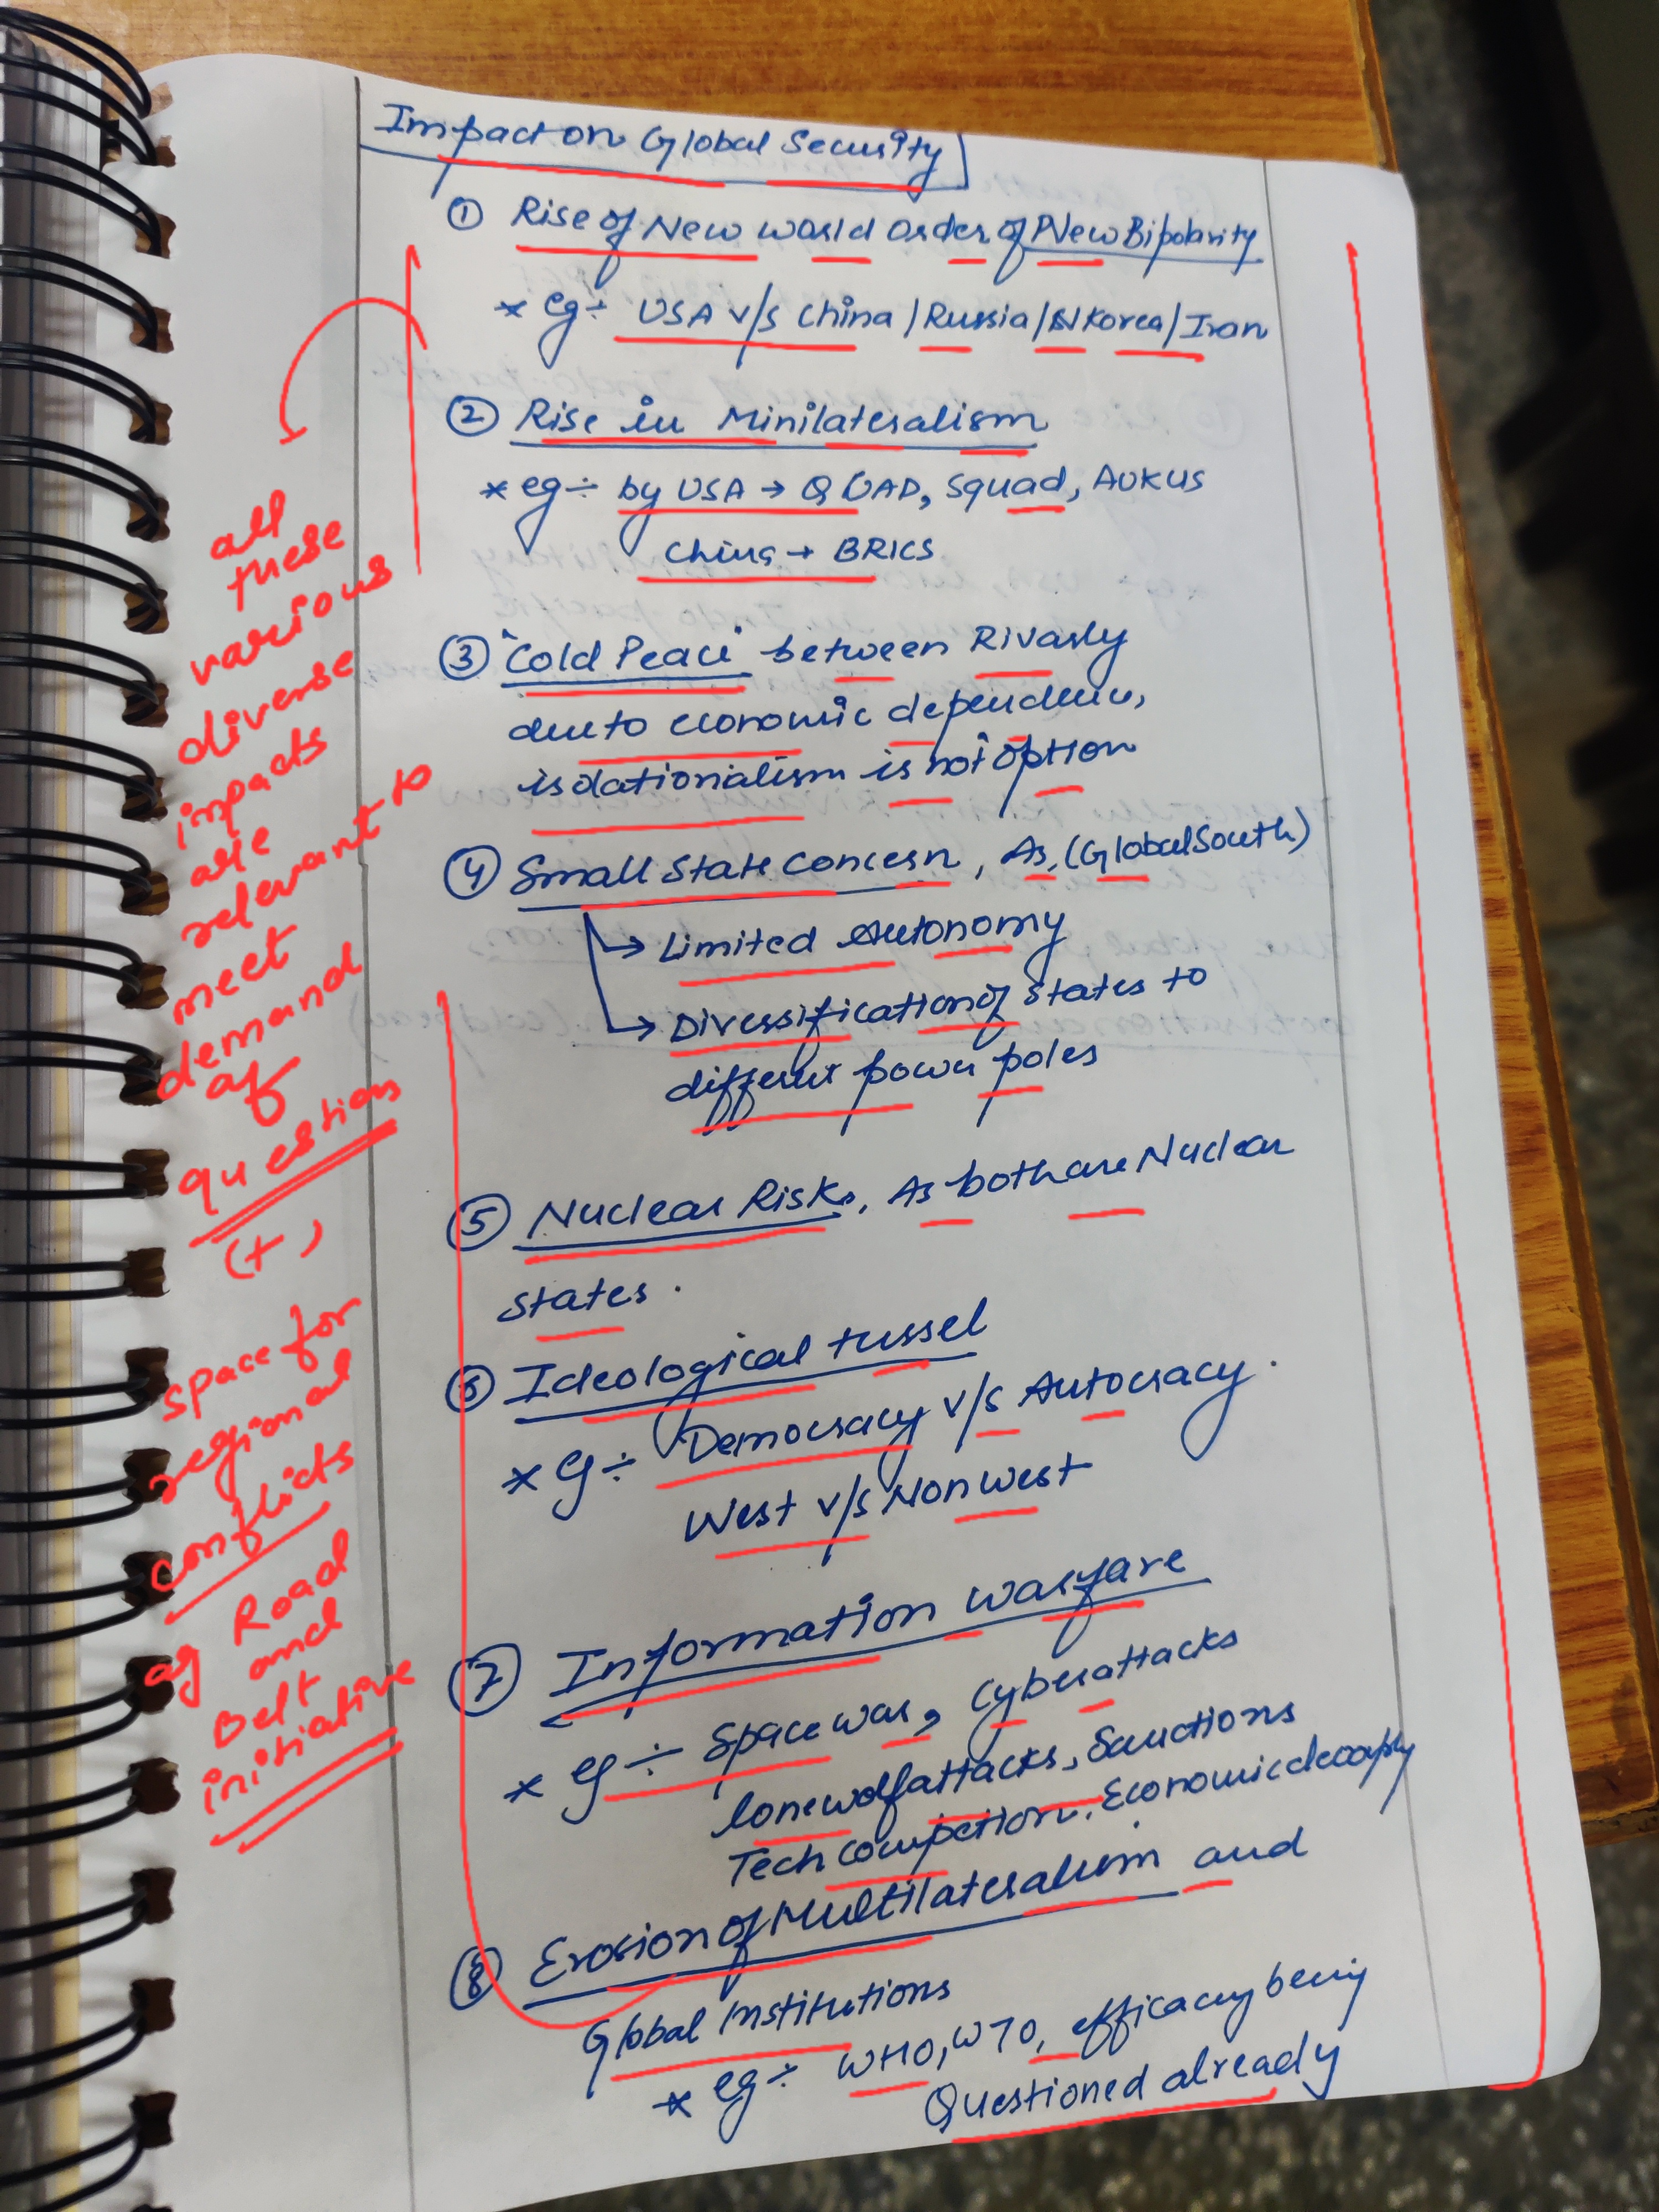 Impact on Global Security
① Rise of New World Order of New Bipolarity
* eg÷ USA v/s China / Russia / N Korea / Iran
② Rise in Minilateralism
* eg÷ by USA → QUAD, Squad, AUKUS
China → BRICS
③ "Cold Peace" between Rivarly
due to economic dependence,
isolationalism is not option
④ Small State Concern, As, (Global South)
↳ Limited Autonomy
↳ Diversification of States to
different power poles
⑤ Nuclear Risks, As both are Nuclear
States.
⑥ Ideological tussel
* eg÷ Democracy v/s Autocracy.
West v/s Non West
⑦ Information Warfare
* eg÷ Space war, Cyberattacks
lonewolf attacks, Sanctions
Tech compettion, Economic
⑧ Erosion of Multilateralism and
Global Institutions
* eg÷ WHO, WTO, efficacy being
Questioned already
all
these
various
diverse
impacts
are
relevant to
meet
demand
of
question
(+)
space for
regional
conflicts
eg Road
and
Belt
initiative